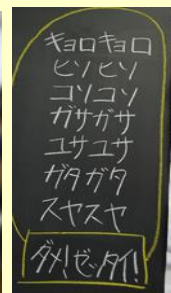 キョロキョロ
ヒソヒソ
コソコソ
ガサガサ
ユサユサ
ガタガタ
スヤスヤ
ダメ!ゼッタイ!